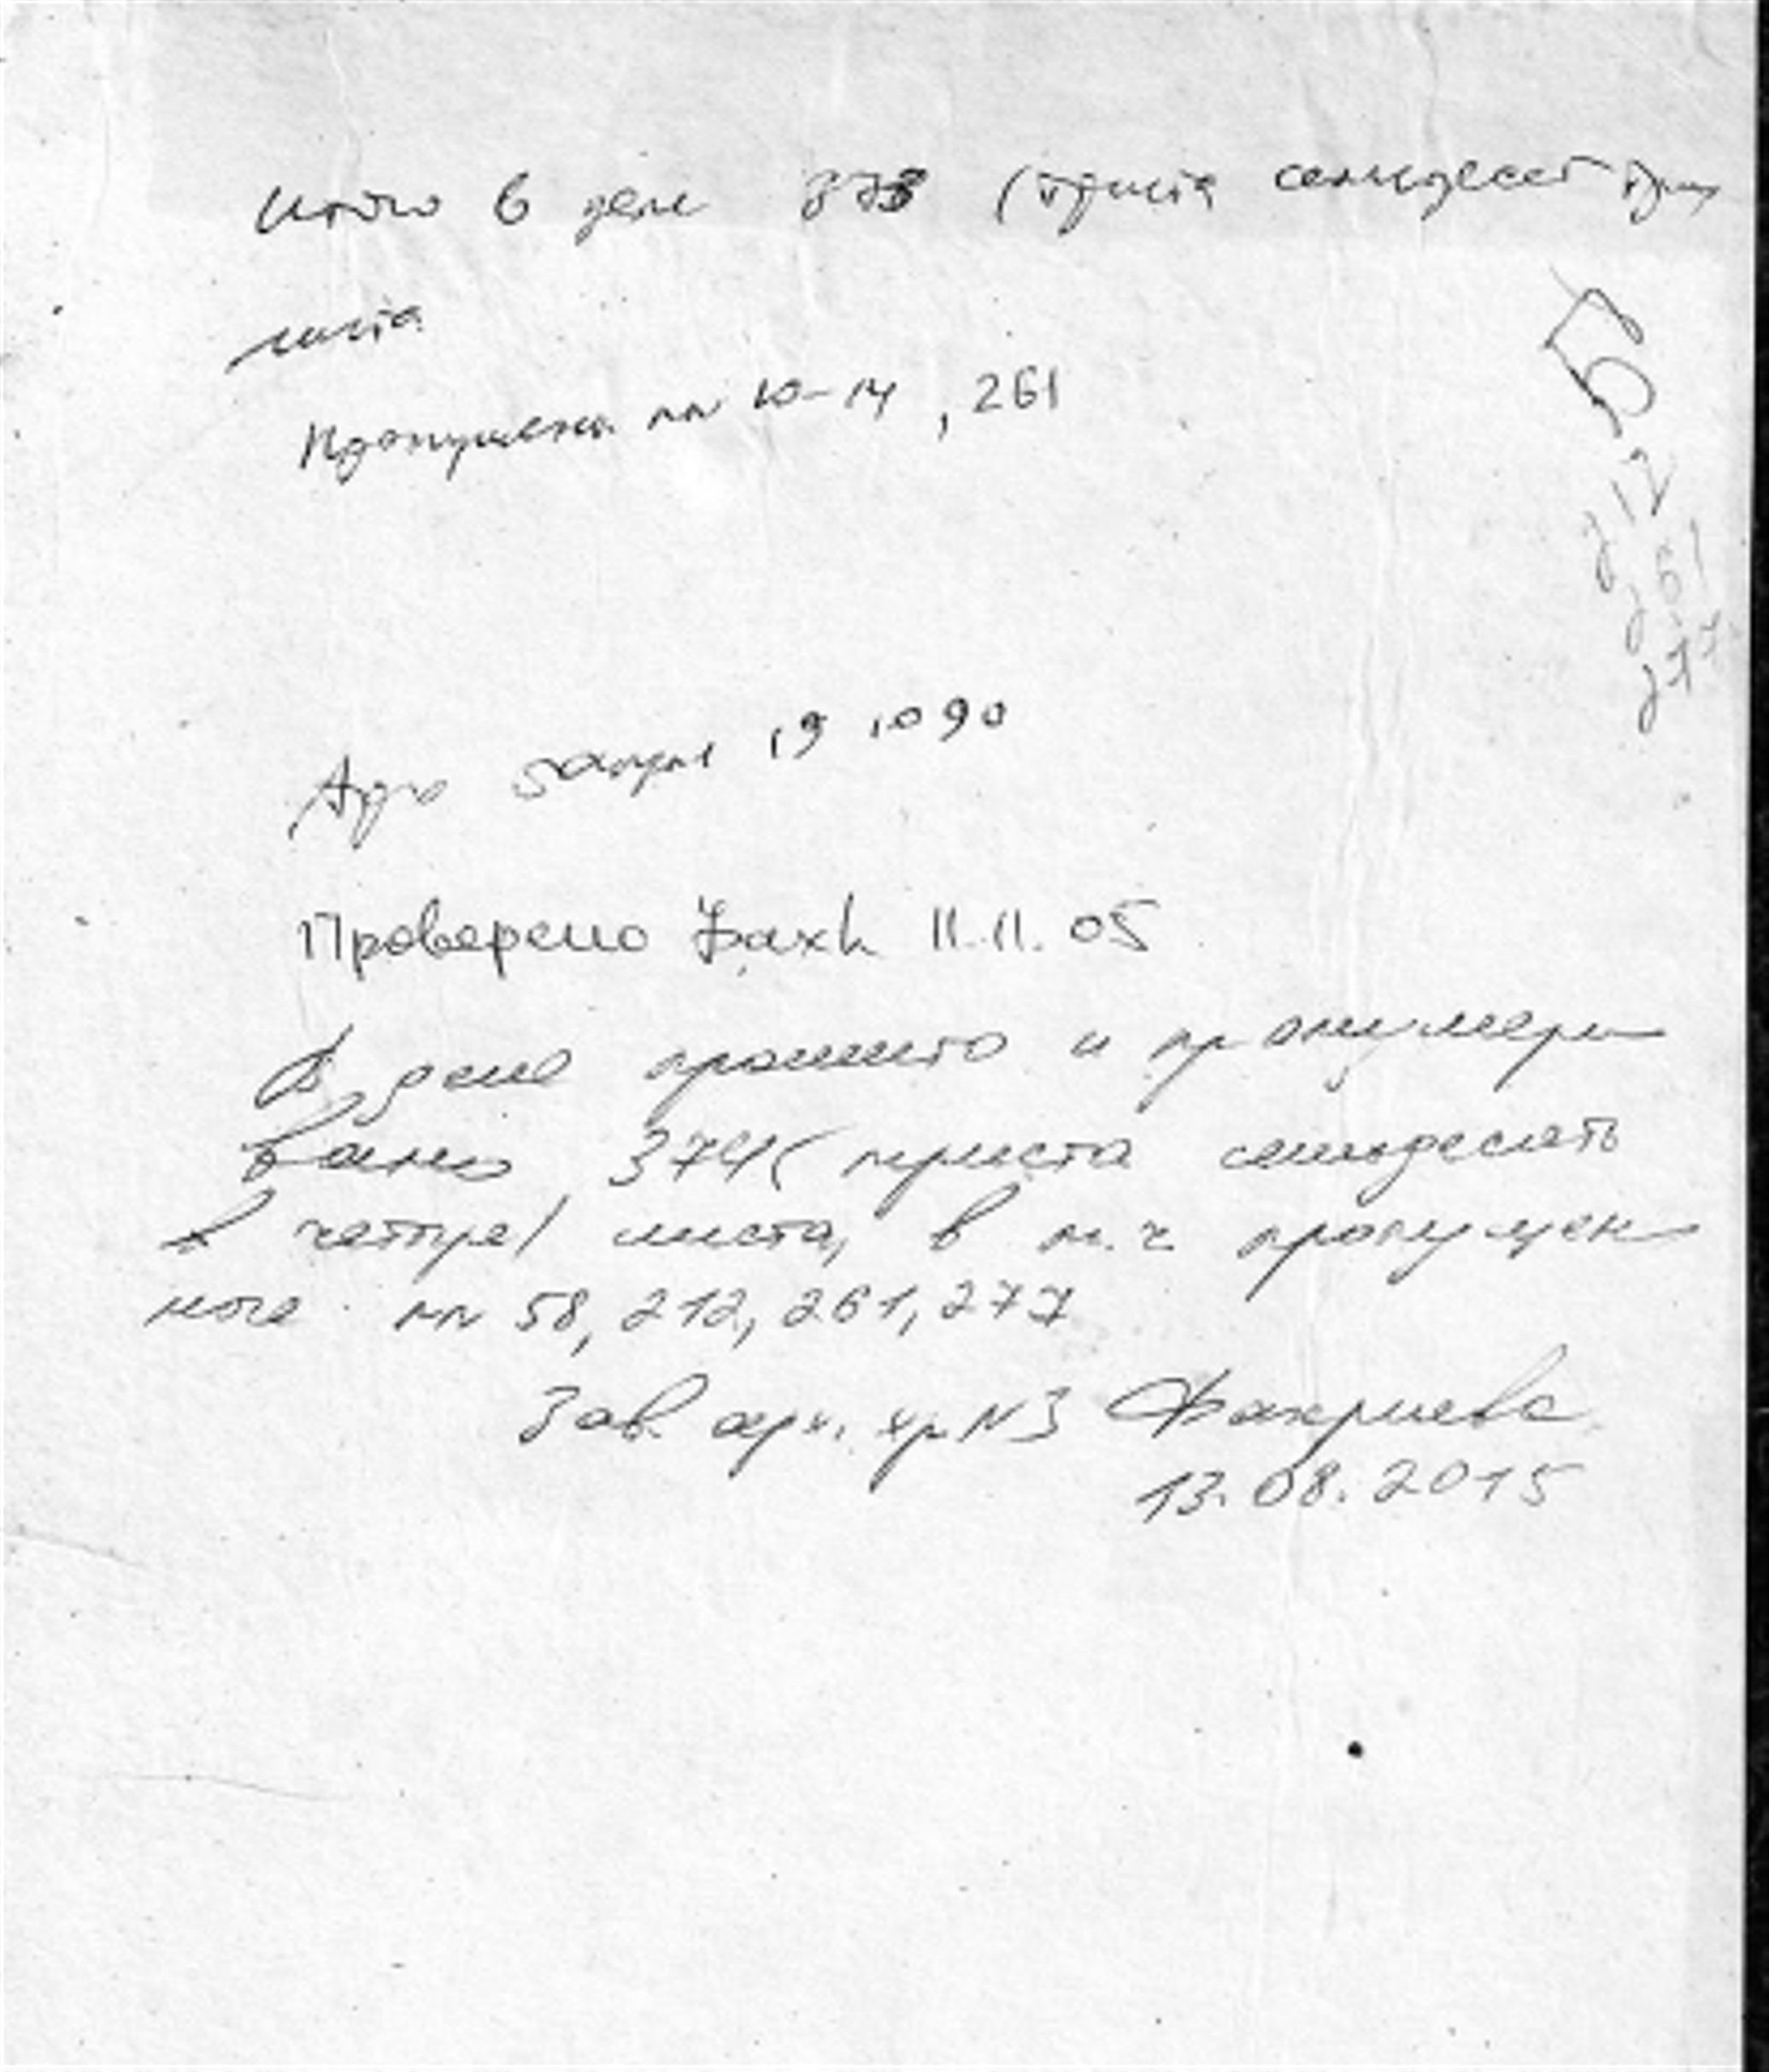 Итого в деле 373 (триста семьдесят три
листа
Пропущены лл 10-14, 261
212
261
277
19 10 90
Проверено 11.11.05
В деле прошито и пронумеро
вано 374 (триста семьдесять
четыре) листа, в т.ч пропущен
ные лл 58, 212, 261, 277
Зав. арх. хр N3 Фахриева
13.08.2015